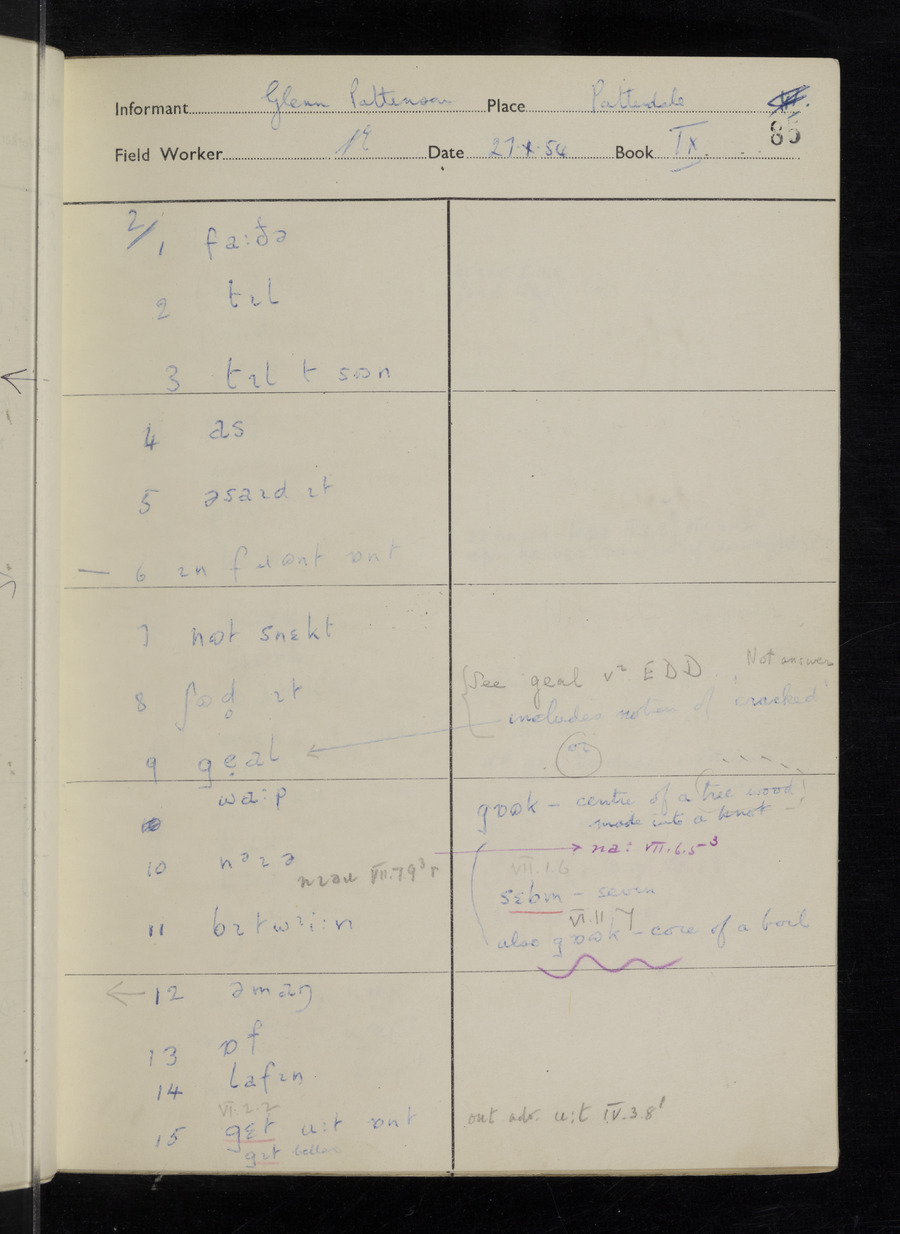 Informant Glenn Pattinson Place Patterdale
85
Field Worker Date 27.X.54 Book IX
2/1 fa:ðə
2 tɪl
3 tɪl t sʊn
4 as
5 əsaɪd ɪt
6 ɪn fɹɷnt ɒnt
7 nɒt snɛkt
8 ʃɷd̥ ɪt
9 gęal
wa:p
10 nəɪə
nɪəu VII.7.9³ r
11 bɪtwɪi:n
12 əmaŋ
13 ɒf
14 lafɪn
VI.2.2
15 gɛt u:t ɒnt
gɪt better
See geal v² EDD. Not answer
includes notion of 'cracked'
or
gɒʊk – centre of a (tree wood)
made into a knot
→ na: VII.6.5-³
VII.1.6
sɛbm – seven
VI.11.7
also gɒʊk – core of a boil
out adv. u:t IV.3.8¹